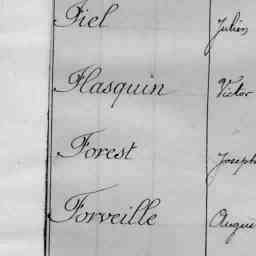 Fiel Julien
Flasquin Victor
Forest Joseph
Forveille Augus